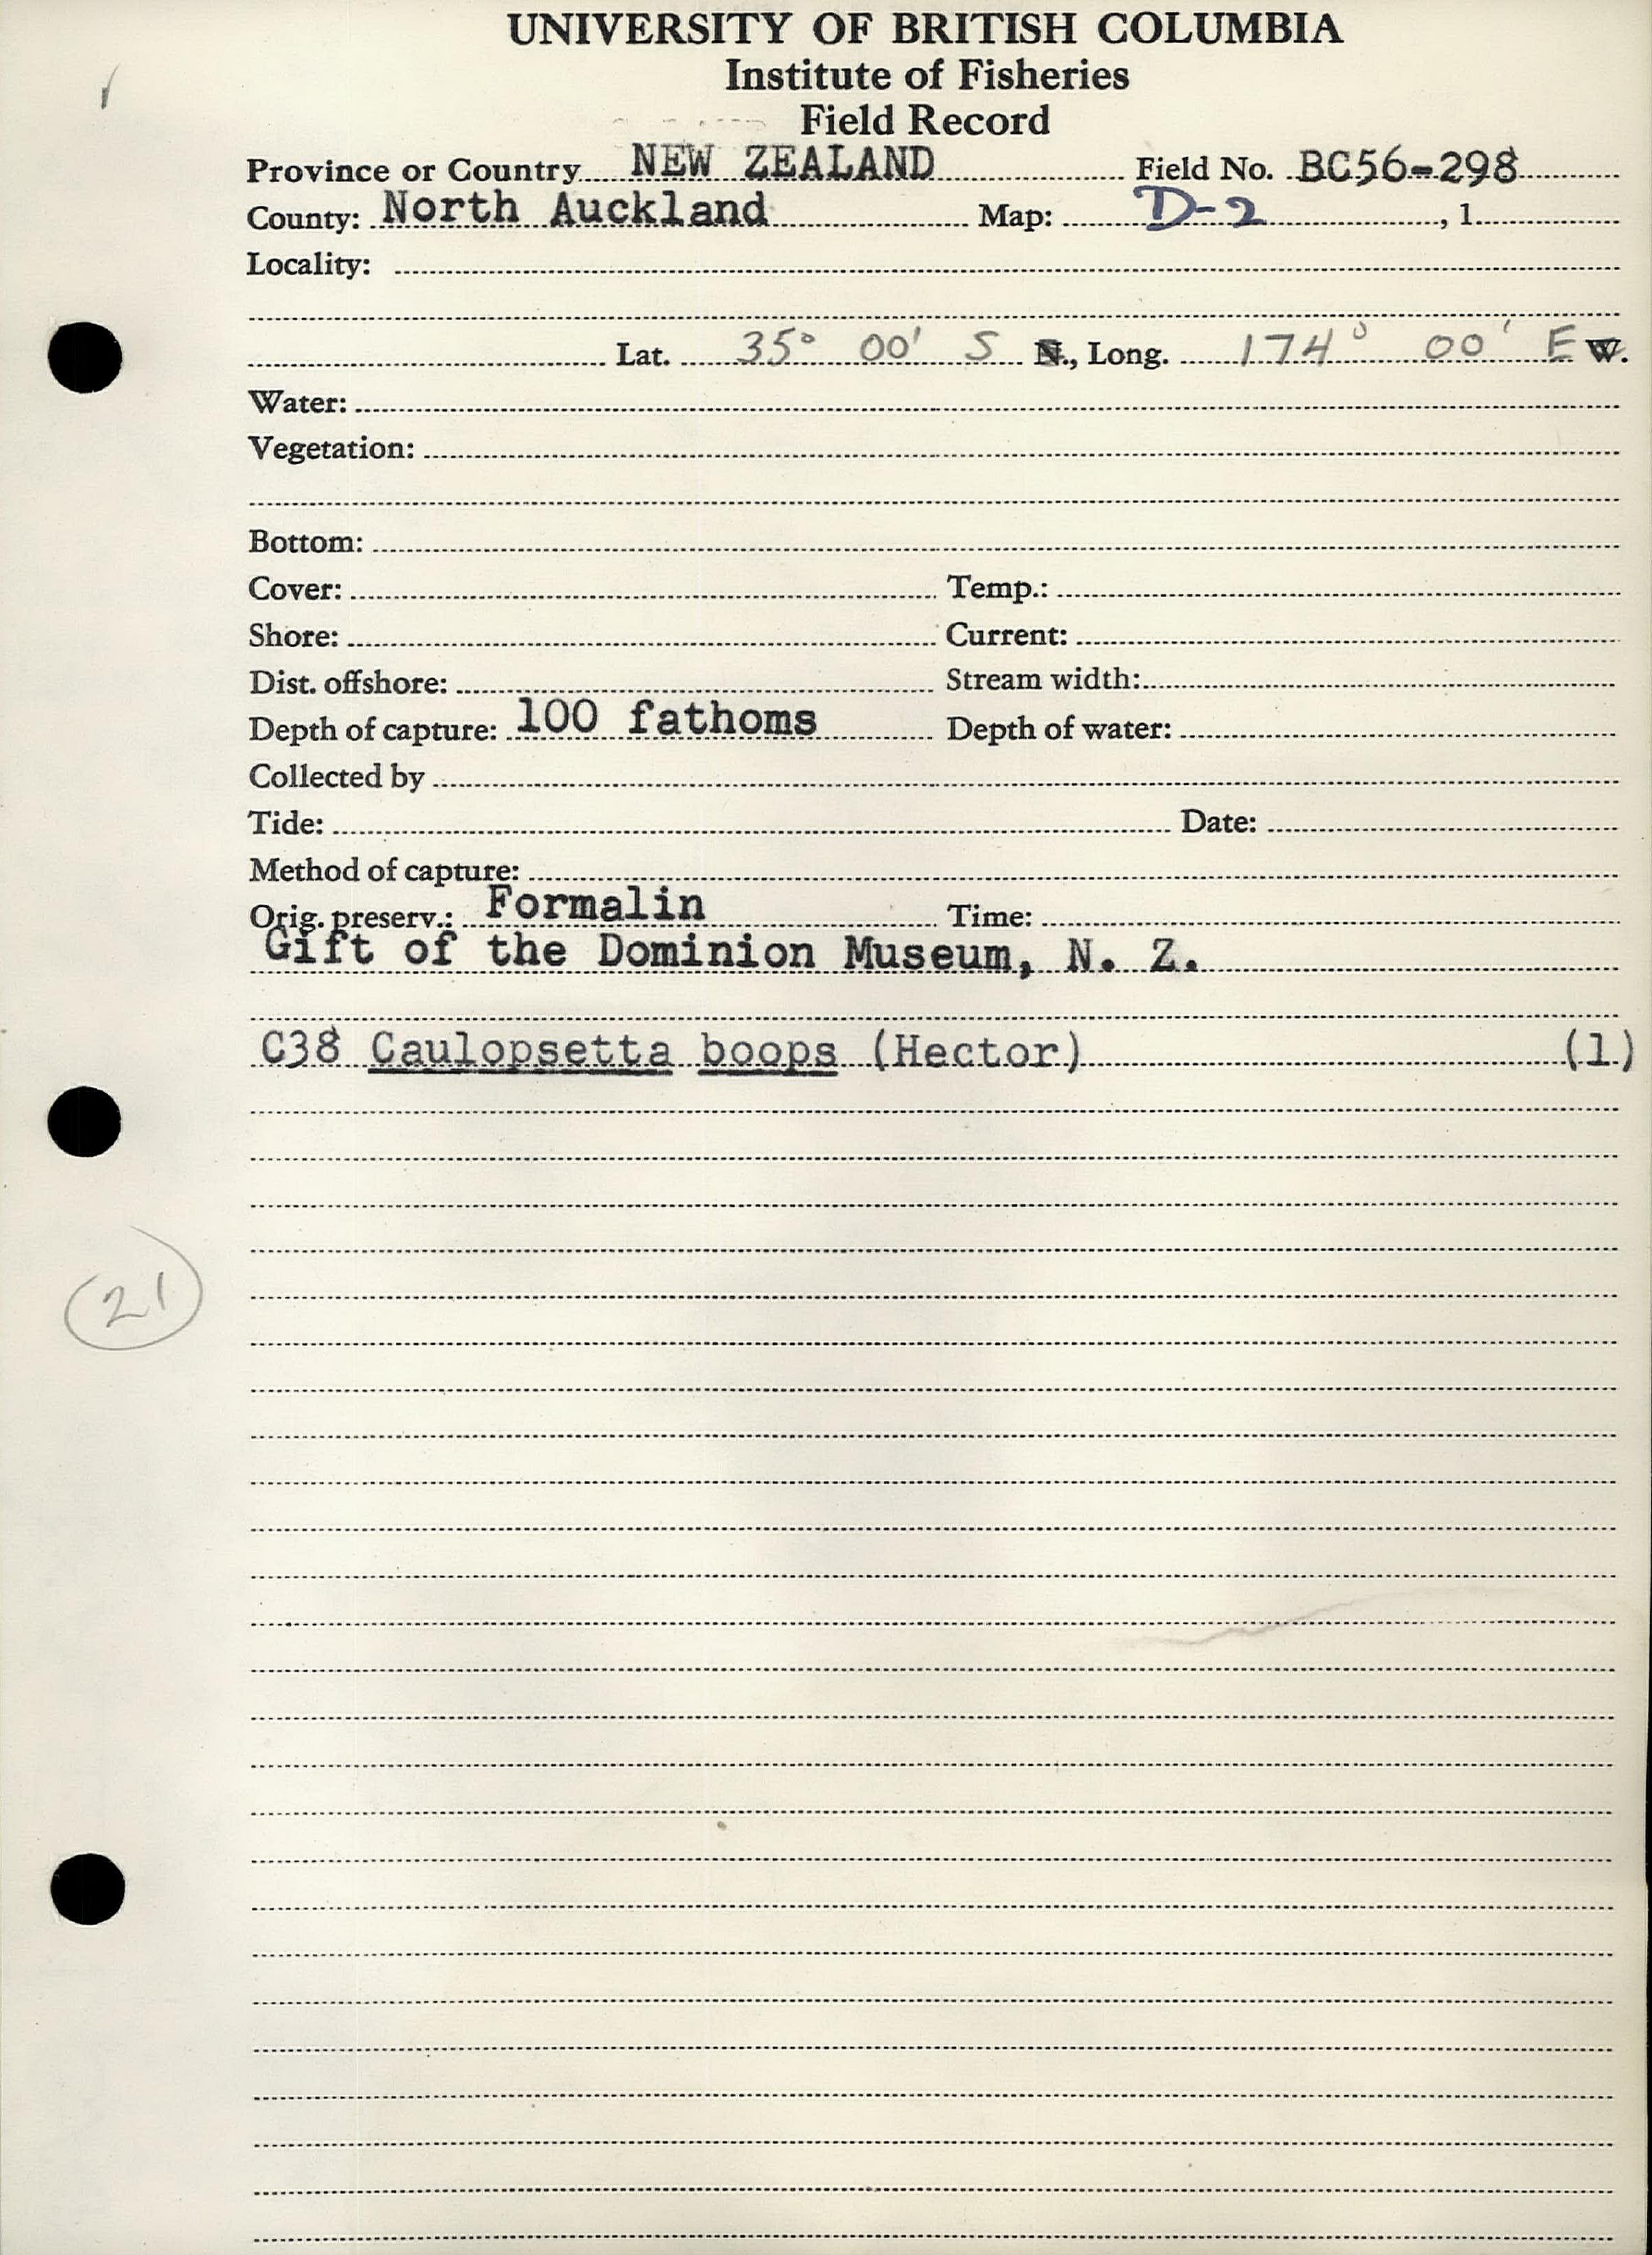 UNIVERSITY OF BRITISH COLUMBIA
Institute of Fisheries
Field Record
Province or Country NEW ZEALAND Field No. BC56-298
County: North Auckland Map: D-2, 1
Locality:
Lat. 35° 00' S N., Long. 174° 00' E W.
Water:
Vegetation:
Bottom:
Cover: Temp.:
Shore: Current:
Dist. offshore: Stream width:
Depth of capture: 100 fathoms Depth of water:
Collected by
Tide: Date:
Method of capture:
Orig. preserv.: Formalin Time:
Gift of the Dominion Museum, N. Z.
C38 Caulopsetta boops (Hector) (1)
21